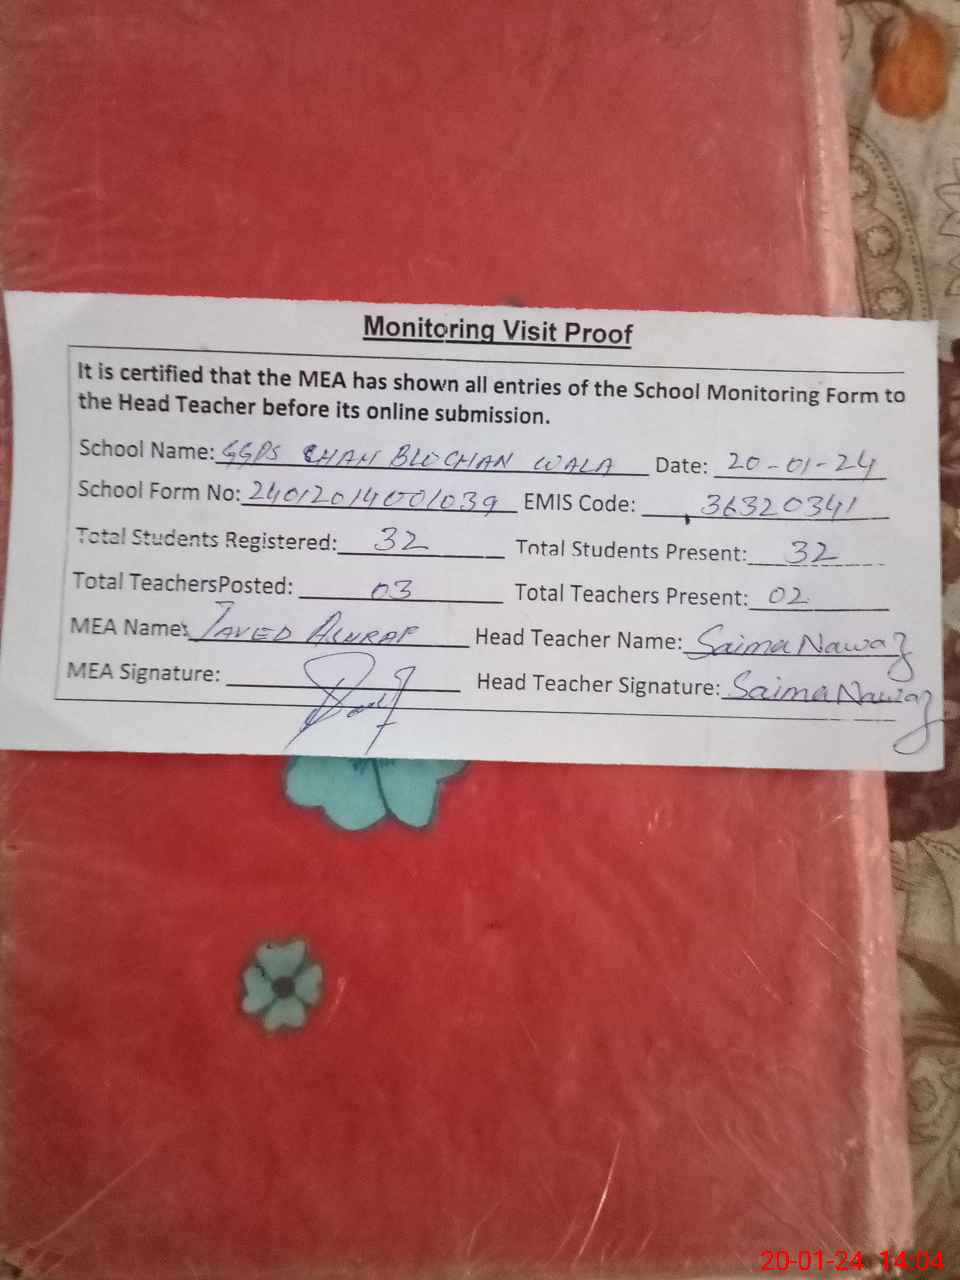 Monitoring Visit Proof
It is certified that the MEA has shown all entries of the School Monitoring Form to
the Head Teacher before its online submission.
School Name: GGPS CHAH BLOCHAN WALA Date: 20-01-24
School Form No: EMIS Code: 36320341
Total Students Registered: 32 Total Students Present: 32
Total TeachersPosted: 03 Total Teachers Present: 02
MEA Name: JAVED ASHRAF Head Teacher Name: Saima Nawaz
MEA Signature: Head Teacher Signature: Saima Nawaz
20-01-24 14:04